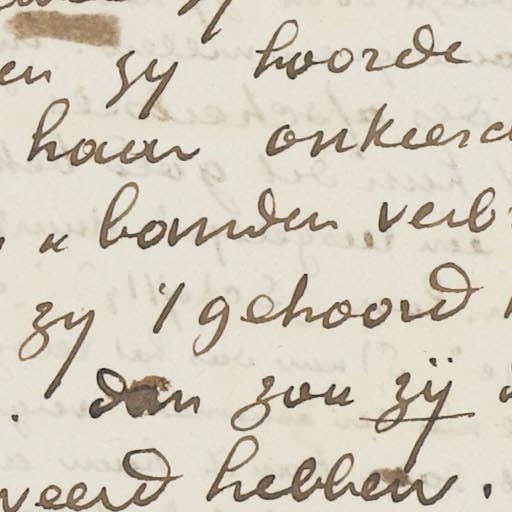 en zy hoorde
haar onkeerd
" banden verb
zy 't gehoord
. dan zou zÿ
veerd hebben.